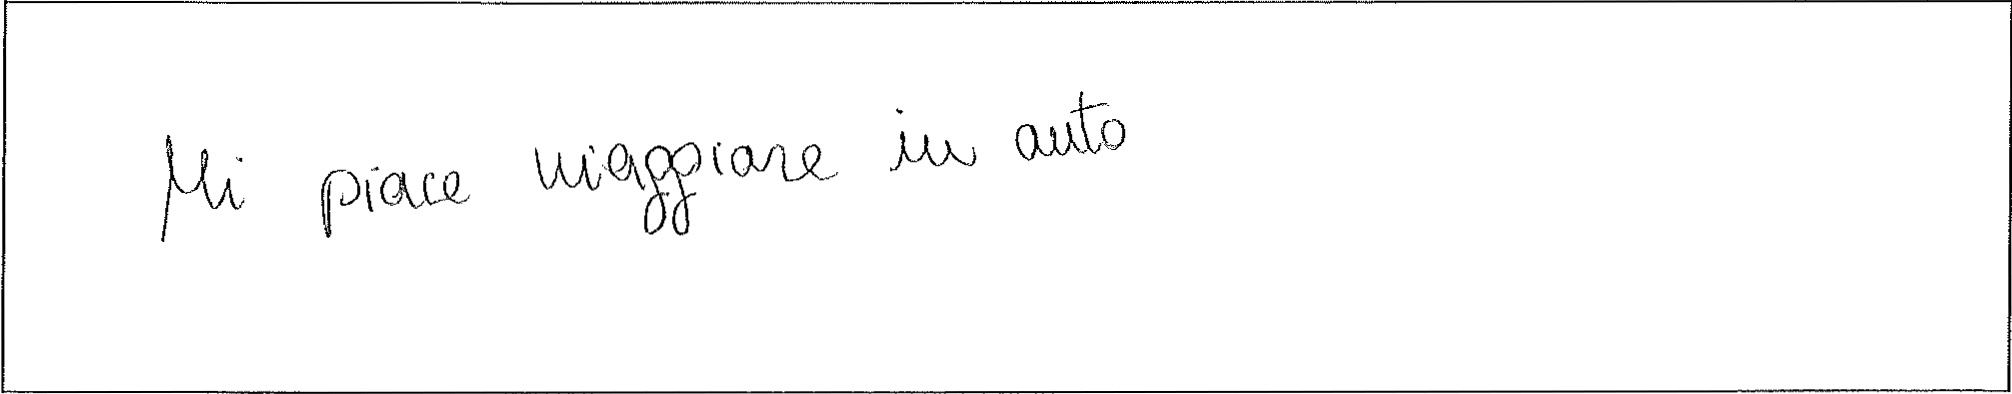 Mi piace viaggiare in auto